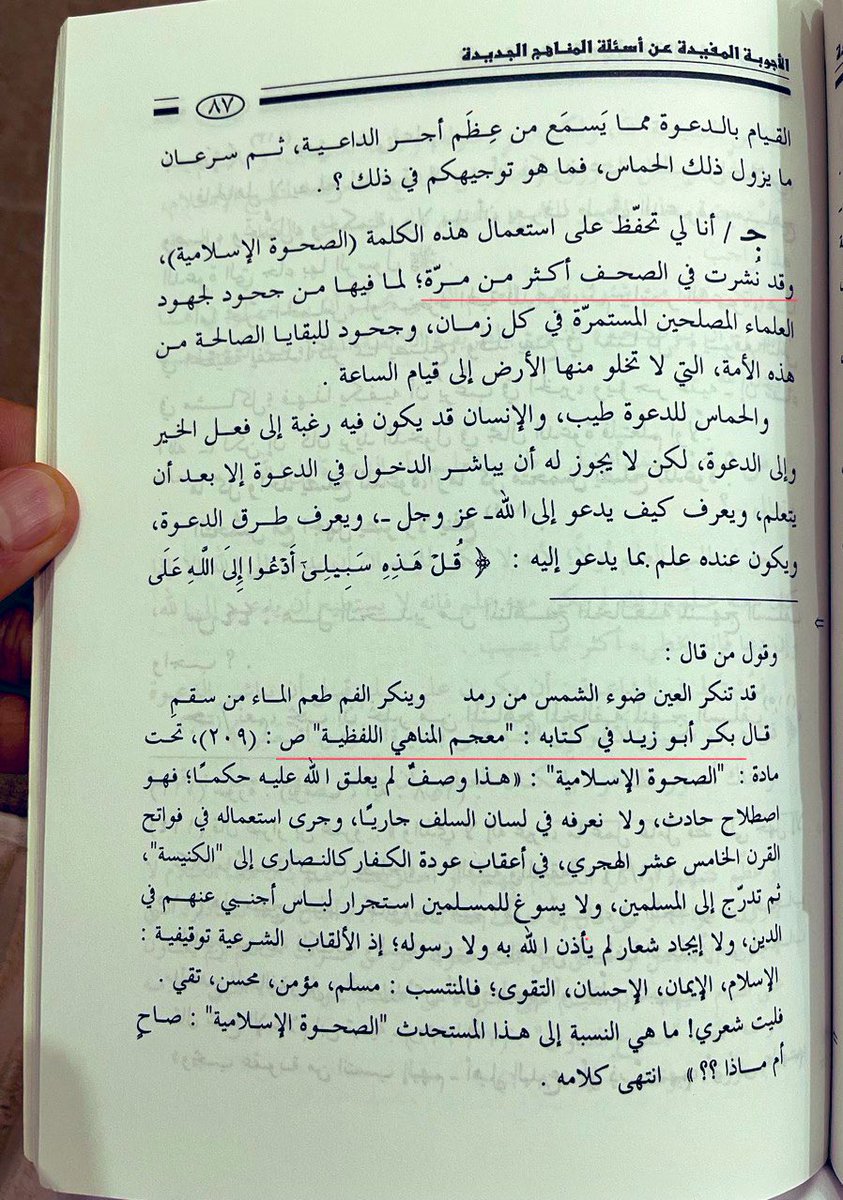 الأجوبة المفيدة عن أسئلة المناهج الجديدة
٨٧
القيام بالدعوة مما يَسمَع من عِظَم أجر الداعية، ثم سرعان
ما يزول ذلك الحماس، فما هو توجيهكم في ذلك ؟ .
جـ / أنا لي تحفّظ على استعمال هذه الكلمة (الصحوة الإسلامية)،
وقد نُشرت في الصحف أكثر من مرّة؛ لما فيها من جحود لجهود
العلماء المصلحين المستمرّة في كل زمان، وجحود للبقايا الصالحة من
هذه الأمة، التي لا تخلو منها الأرض إلى قيام الساعة .
والحماس للدعوة طيب، والإنسان قد يكون فيه رغبة إلى فعل الخير
وإلى الدعوة، لكن لا يجوز له أن يباشر الدخول في الدعوة إلا بعد أن
يتعلم، ويعرف كيف يدعو إلى الله ـ عز وجل ـ، ويعرف طرق الدعوة،
ويكون عنده علم بما يدعو إليه : ﴿ قُلْ هَذِهِ سَبِيلِي أَدْعُوا إِلَى اللَّهِ عَلَى
وقول من قال :
قد تنكر العين ضوء الشمس من رمد وينكر الفم طعم الماء من سقمِ
قال بكر أبو زيد في كتابه : "معجم المناهي اللفظية" ص : (٢٠٩)، تحت
مادة : "الصحوة الإسلامية" : «هذا وصفٌ لم يعلق الله عليه حكمًا؛ فهو
اصطلاح حادث، ولا نعرفه في لسان السلف جاريًا، وجرى استعماله في فواتح
القرن الخامس عشر الهجري، في أعقاب عودة الكفار كالنصارى إلى "الكنيسة"،
ثم تدرّج إلى المسلمين، ولا يسوغ للمسلمين استجرار لباس أجنبي عنهم في
الدين، ولا إيجاد شعار لم يأذن الله به ولا رسوله؛ إذ الألقاب الشرعية توقيفية :
الإسلام، الإيمان، الإحسان، التقوى؛ فالمنتسب : مسلم، مؤمن، محسن، تقي .
فليت شعري! ما هي النسبة إلى هذا المستحدث "الصحوة الإسلامية" : صاحٍ
أم ماذا ؟؟ » انتهى كلامه .